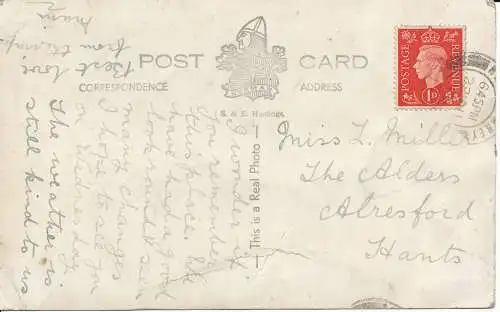 POST CARD
CORRESPONDENCE
ADDRESS
S. & E. Hastings
This is a Real Photo
POSTAGE
REVENUE
1D
6 45 PM
I wonder if
you remember
this place. We
have had a good
look round & seen
many changes
I hope to see you
on Wednesday
The weather is
still kind to us
Best love
from
Miss L. Miller
The Alders
Alresford
Hants